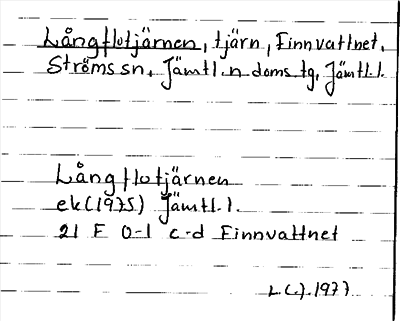 Långflotjärnen, tjärn, Finnvattnet,
Ströms sn, Jämtl. n doms tg, Jämtl.l.
Långflotjärnen
ek (1975) Jämtl.l.
21 F 0-1 c-d Finnvattnet
1977